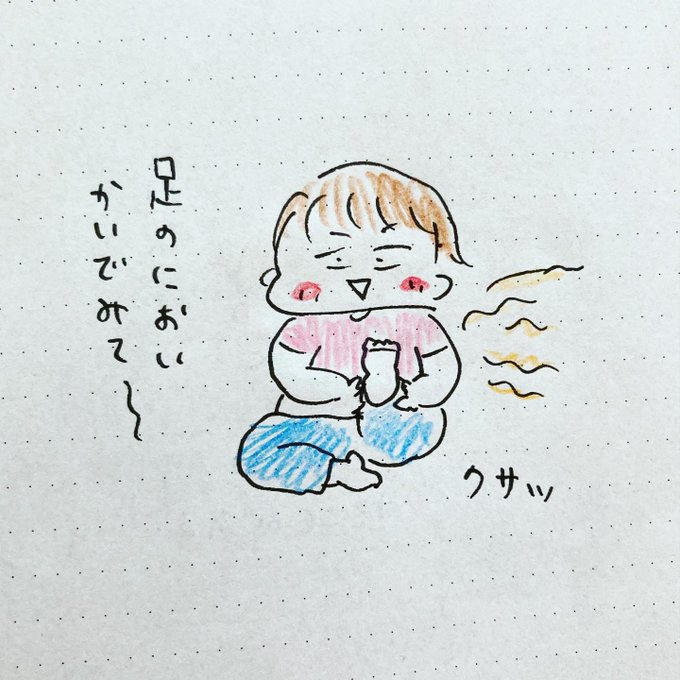 足のにおい
かいでみて〜
クサッ